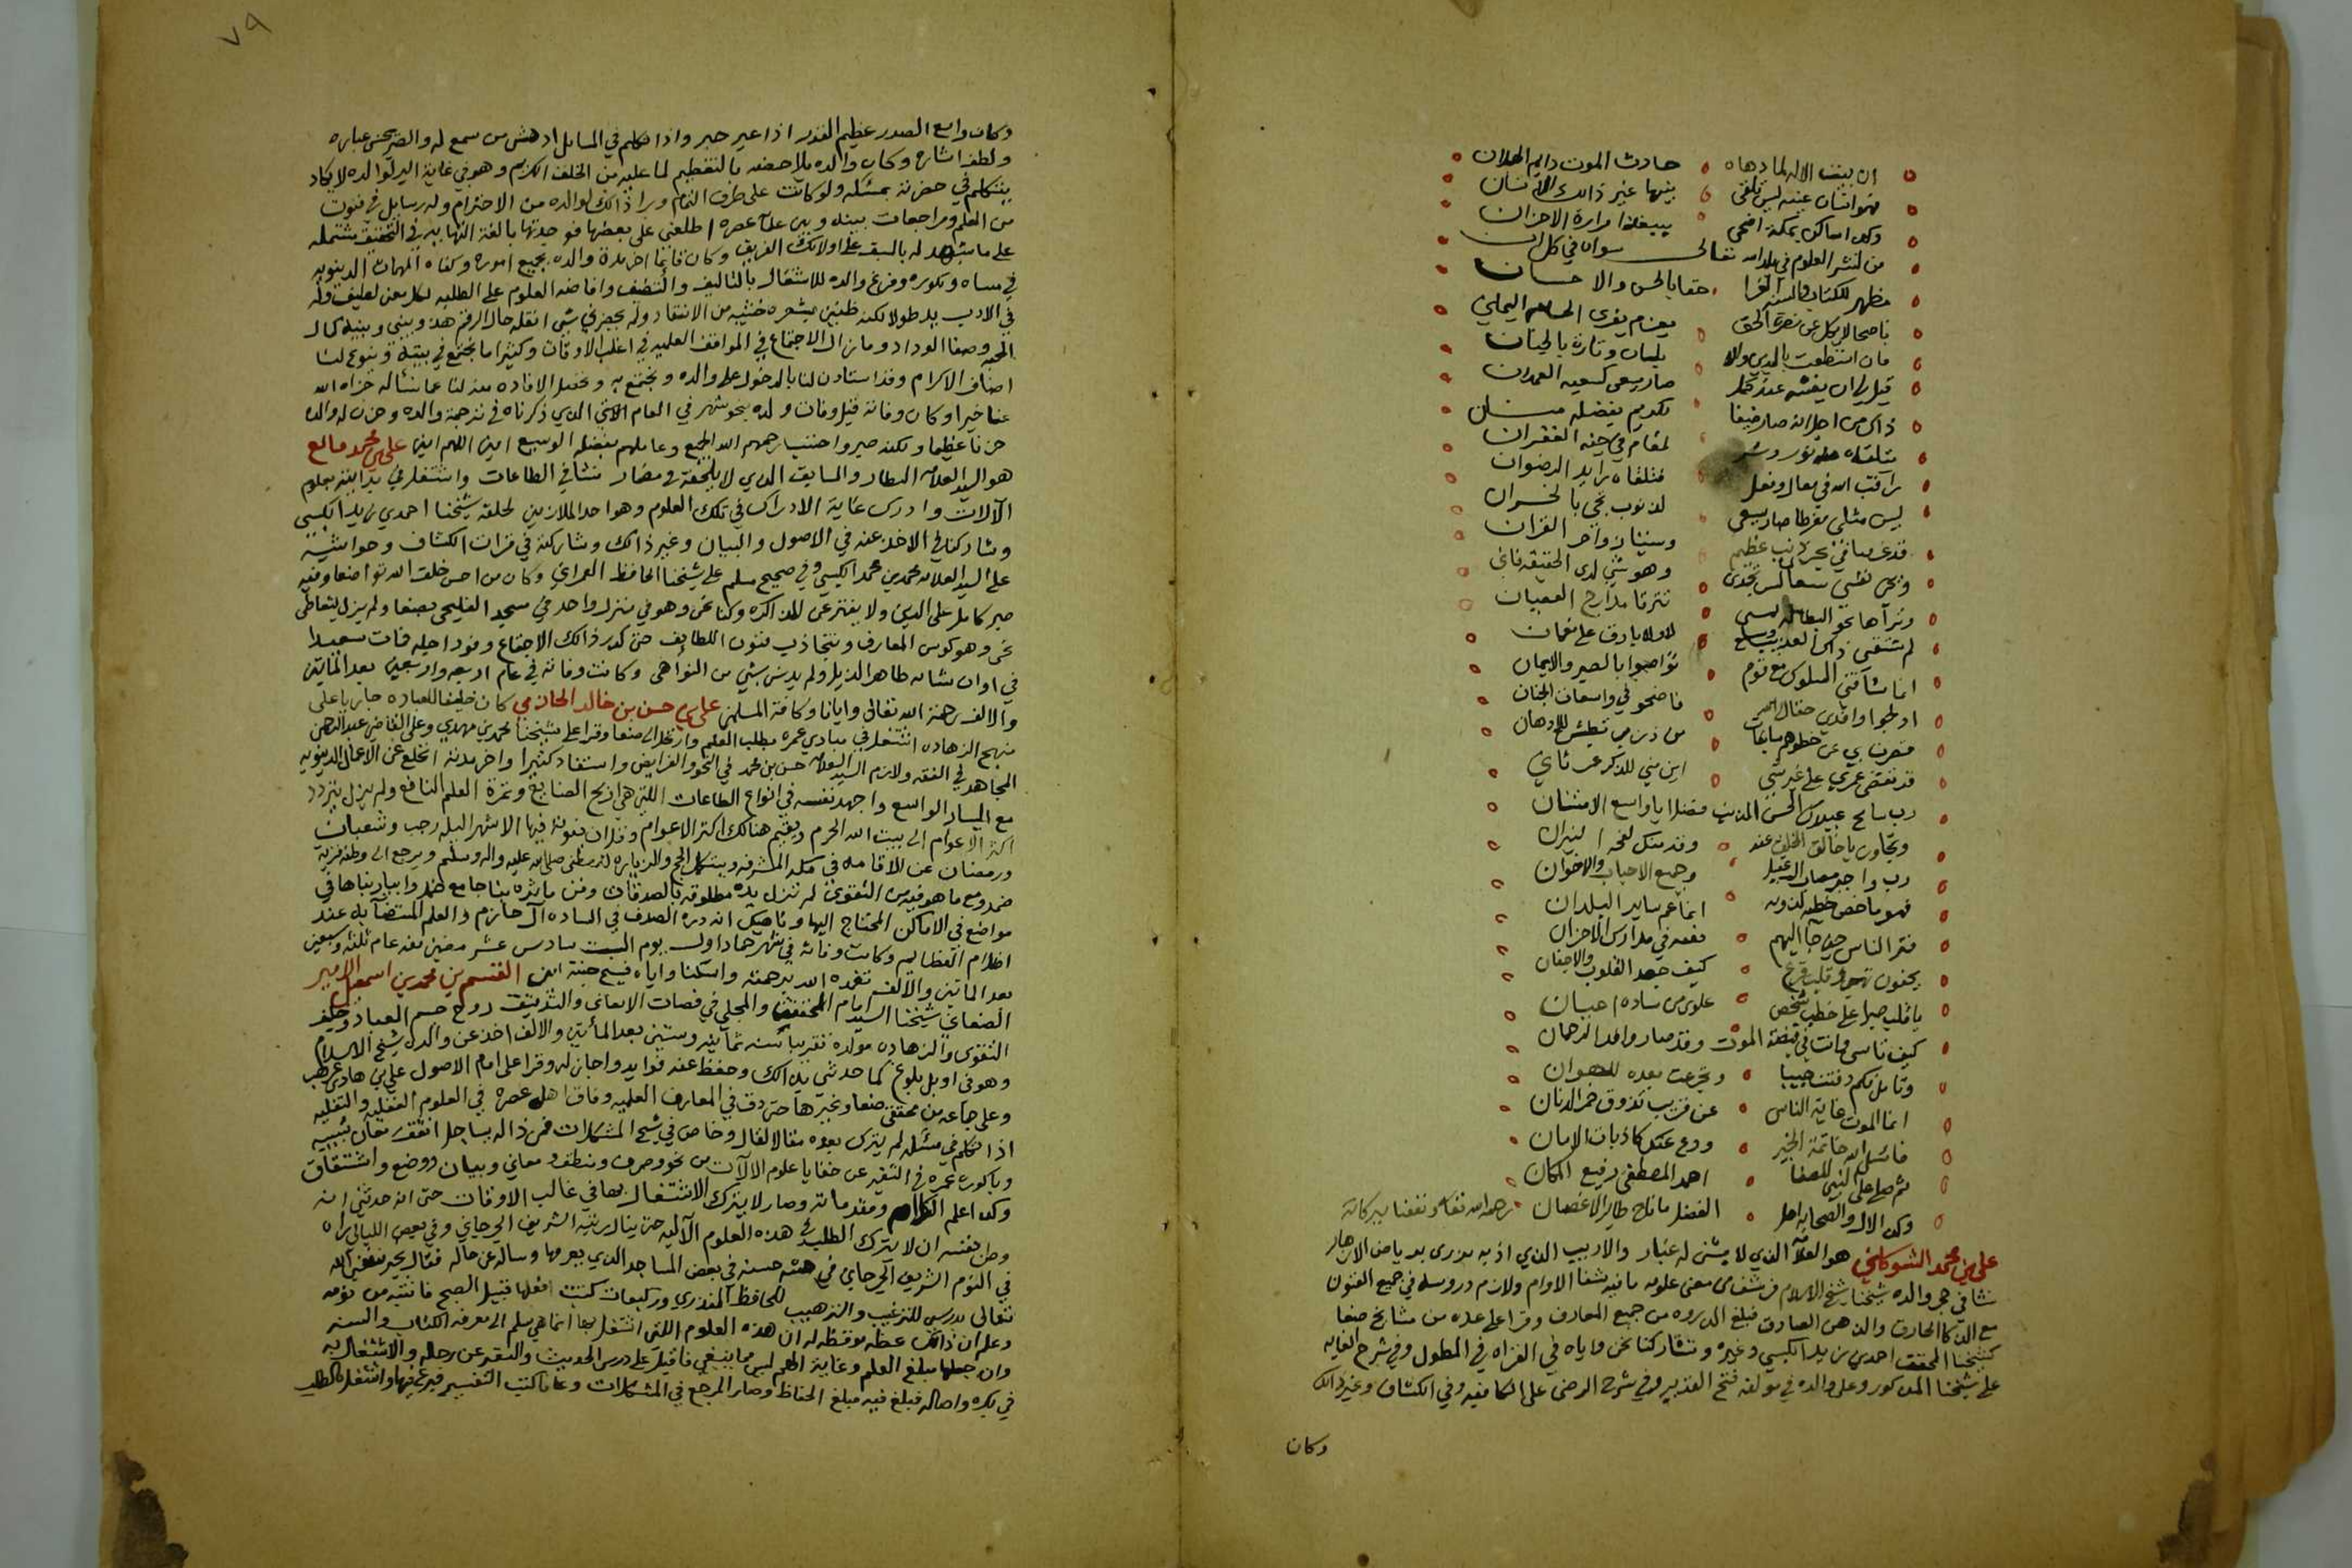 ان بيت الاله لما دهاه حادث الموت دايم الهلان
فهو انسان عينه ليس تلقى بينها غير ذالك الانسان
وكل اساكن بمكة اضحى مرارة الاحزان
من لنشر العلوم في بلد الله تعالى سواه في كل ان
مظهر للكتاب والسنه الغرا حقا بالحسن والاحسان
ناصحا لايكل عن نصرة الحق اليماني
بلسان وتارة بالجنان
صار يسعى كسعيه العمران
ذاك من اجل انه صار ضيفا لكريم بفضله
لمقام في جنه الغفران
راقب الله في مقال وفعل فتلقاه زايد الرضوان
ليس مثلي مفرطا صار يسعى لذنوب تجي بالخسران
قد غرقنا في بحر ذنب عظيم
وهو شي لدى الحقيقه فاني
لم تثقني ذاك العذيب وسلع لا ولا بارق على نعمان
انما شاقني السلوك مع قوم تواصوا بالصبر والايمان
فاضحو في واسعات الجنان
قد تقضى عمري على غير شي اين مني للذكر عن ثاني
رب سامح عبيدك الحسن المذنب فضلا يا واسع الامتنان
وتجاوز يا خالق الخلق عنه
وجميع الاحباب والاخوان
فهو ماخص خطبه لذويه انما عم ساير البلدان
فترا الناس حين جا اليهم
كيف جهد القلوب والاجفان
يا قلب صبرا على خطب شخص علوي من ساده اعيان
كيف تاسى وانت في قبضة الموت وقد صار وافد الرحمان
وتامل كم دفنت حبيبا وتجرعت بعده للهوان
انما الموت غاية الناس عن قريب تذوق خمر الدنان
فاسئل الله خاتمة الخير ودع عنك كاذبات الامان
ثم صلي على النبي المصفا احمد المصطفى رفيع المكان
وكل الال والصحابه اهل الفضل ما ناح طاير الاغصان رحمه الله تعالى ونفعنا ببركاته
علي بن محمد الشوكاني هو العلامه الذي لا يشق له غبار والاديب الذي ادبه يزري برياض الازهار
نشا في حجر والده شيخنا شيخ الاسلام فرشف من معين علومه مافيه شفا الاوام ولازم دروسه في جميع الفنون
مع الذكا الحارق والذهن الصادق فبلغ الذروه من جميع المعارف وقرا على عده من مشايخ صنعا
كشيخنا المحقق احمد بن زيد الكبسي وغيره وتشاركنا نحن واياه في القراه في المطول وفي شرح الغايه
على شيخنا المذكور وعلى والده في مولفه فتح القدير وفي شرح الرضي على الكافيه وفي الكشاف وغير ذالك
وكان
٧٩
وكان واسع الصدر عظيم القدر اذا عبر حبر واذا تكلم في المسايل ادهش من سمع له والضر بحسن عباره
ولطف اشاره وكان والده يلاحضه بالتعظيم لما عليه من الخلق الكريم وهو في غاية البر لوالده لايكاد
يتكلم في حضرته بمسئله ولو كانت على طرف الثمام ويرا ذالك لوالده من الاحترام وله رسايل في فنون
من العلم ومراجعات بينه وبين علماء عصره اطلعني على بعضها فوجدتها بالغة النهايه في التحقيق مشتمله
على ما يشهد له بالسبق على اولائك الفريق وكان قايما اخر مدة والده بجميع اموره وكفاه المهمات الدنيويه
في مساه وبكوره وفرغ والده للاشتغال بالتاليف والتصنيف وافاضه العلوم على الطلبه
في الادب يد طولا لكنه ظنين بشعره خشيه من الانتقاد ولم يحضرني شي انقله حال الرقم هذا وبيني وبينه كمال
المحبه وصفا الوداد وما زال الاجتماع في المواقف العلميه في اغلب الاوقات وكثيرا ما نجتمع في بيته وينوع لنا
اصناف الاكرام وقد استاذن لنا بالدخول على والده ونجتمع به وتحصل الافاده منه لنا عما نسأله جزاه الله
عنا خيرا وكان وفاته قبل وفات والده بنحو شهر في العام الاتي الذي ذكرناه في ترجمة والده وحزن له والده
حزنا عظيما ولكنه صبر واحتسب رحمهم الله الجميع وعاملهم بفضله الوسيع امين اللهم امين علي بن محمد مانع
هو السيد العلامه النظار والسابق الذي لا يلحقه في مضمار نشا في الطاعات واشتغل في بدايته بعلوم
الالات وادرك غاية الادراك في تلك العلوم وهو احد الملازمين لحلقه شيخنا احمد بن زيد الكبسي
وشاركنا في الاخذ عنه في الاصول والبيان وغير ذالك وشاركته في قرات الكشاف وحواشيه
على السيد العلامه محمد بن محمد الكبسي وفي صحيح مسلم على شيخنا الحافظ العمراني وكان من احسن خلق الله تواضعا وفيه
صبر كامل على الدين ولا يفتر عن المذاكره وكنا نحن وهو في منزل واحد في مسجد الفليحي بصنعا ولم يزل يتعاطى
نحن وهو كوس المعارف ونتجاذب فنون اللطايف حتى كدر ذالك الاجتماع وفود اجله فمات سعيدا
في اوان شبابه طاهر الذيل ولم يدنس بشي من النواهي وكانت وفاته في عام اربعه واربعين بعد المايتين
والالف رحمه الله تعالى وايانا وكافة المسلمين علي بن حسن بن خالد الحازمي كان حليفا للعباده جاريا على
منهج الزهاده اشتغل في مبادي عمره بطلب العلم وارتحل الى صنعا وقرا على شيخنا محمد بن مهدي وعلى القاضي عبد الرحمن
المجاهد في الفقه ولازم السيد العلامه حسن بن محمد في النحو والفرايض واستفاد كثيرا واخر مدته انخلع عن الاعمال الدنيويه
مع اليسار الواسع واجهد نفسه في انواع الطاعات اللتي هي اربح الصنايع وثمرة العلم النافع ولم يزل يتردد
اكثر الاعوام الى بيت الله الحرم ويقيم هنالك اكثر الاعوام وقل ان يفوته فيها الاشهر الثلثه رجب وشعبان
ورمضان عن الاقامه في مكه المشرفه ويستكمل الحج والزياره للمصطفى صلى الله عليه واله وسلم ويرجع الى وطنه قريه
ضمد ومع ما هو فيه من التقوى لم تزل يده مطلوقه بالصدقات ومن ماثره بنا جامع ضمد وابيار بناها في
مواضع في الاماكن المحتاج اليها وناهيك انه دره الصدف في الساده آل حازم والعلم المستضآ به عند
اظلام العظايم وكانت وفاته في شهر جماد اول يوم السبت سادس عشر مضين منه عام ثلثه وسبعين
بعد الماتين والالف تغمده الله برحمته واسكنا واياه فسيح جنته امين القسم بن محمد بن اسمعيل الامير
الصنعاني شيخنا السيد امام المحققين والمجلي في قصبات الاتقان والتدقيق روح جسم العباده وحليف
التقوى والزهاده مولده تقريبا سنه ثمانيه وستين بعد المأتين والالف اخذ عن والده شيخ الاسلام
وهو في اوايل بلوغ كما حدثني بذالك وحفظ عنه فوايد واجاز له وقرا على امام الاصول علي بن هادي عرهب
وعلى جماعه من محققي صنعا وغيرها حتى دقق في المعارف العلميه وفاق اهل عصره في العلوم العقليه والنقليه
اذا تكلم في مسئله لم يترك بعده مقالا لقال وخاض في شرح المشكلات فمن ذا له يساجل انفق ريعان شبيبه
وباكوره عمره في التنقير عن خفايا علوم الالات من نحو وصرف ومنطق ومعاني وبيان ووضع واشتقاق
وكذا علم الكلام ومقدماته وصار لا يترك الاشتغال بها في غالب الاوقات حتى انه حدثني انه
وطن نفسه ان لا يترك الطلب في هذه العلوم الآليه حتى ينال رتبة الشريف الجرجاني وفي بعض الليالي راه
في النوم الشريف الجرجاني في هيئه حسنه في بعض المساجد الذي يعرفها وساله عن حاله فقال بخير نفعني الله
تعالى بدرسي للترغيب والترهيب للحافظ المنذري وركيعات كنت افعلها قبيل الصبح فانتبه من نومه
وعلم ان ذالك عظه موقظه له ان هذه العلوم اللتي اشتغل بها انما هي سلم الى معرفه الكتاب والسنه
وان جعلها مبلغ العلم وغاية الهم ليس مما ينبغي فاقبل على درس الحديث والتنقير عن رجاله والاشتغال به
في بكره واصاله فبلغ فيه مبلغ الحفاظ وصار المرجع في المشكلات وعانا كتب التفسير فبرع فيها واشتغل